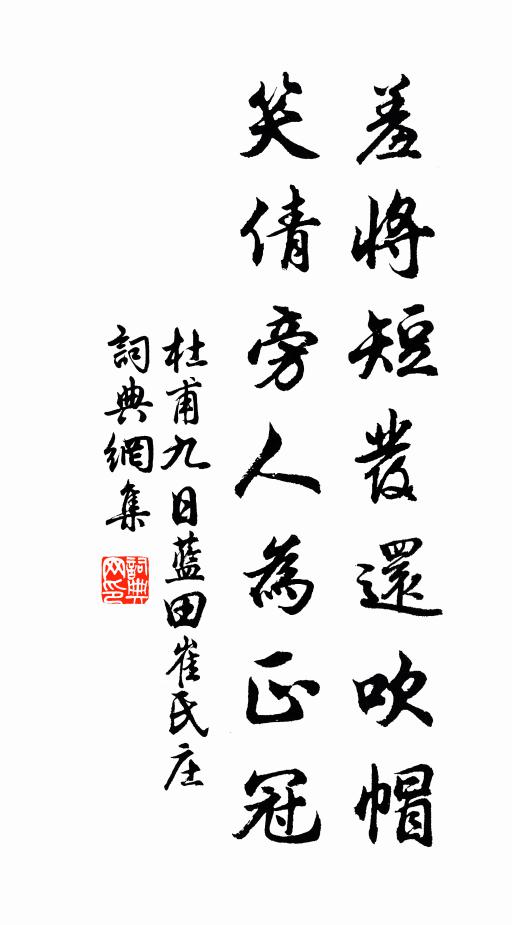 羞將短發還吹帽
笑倩旁人為正冠
杜甫九日藍田崔氏庄
詞典網集
詞典网印